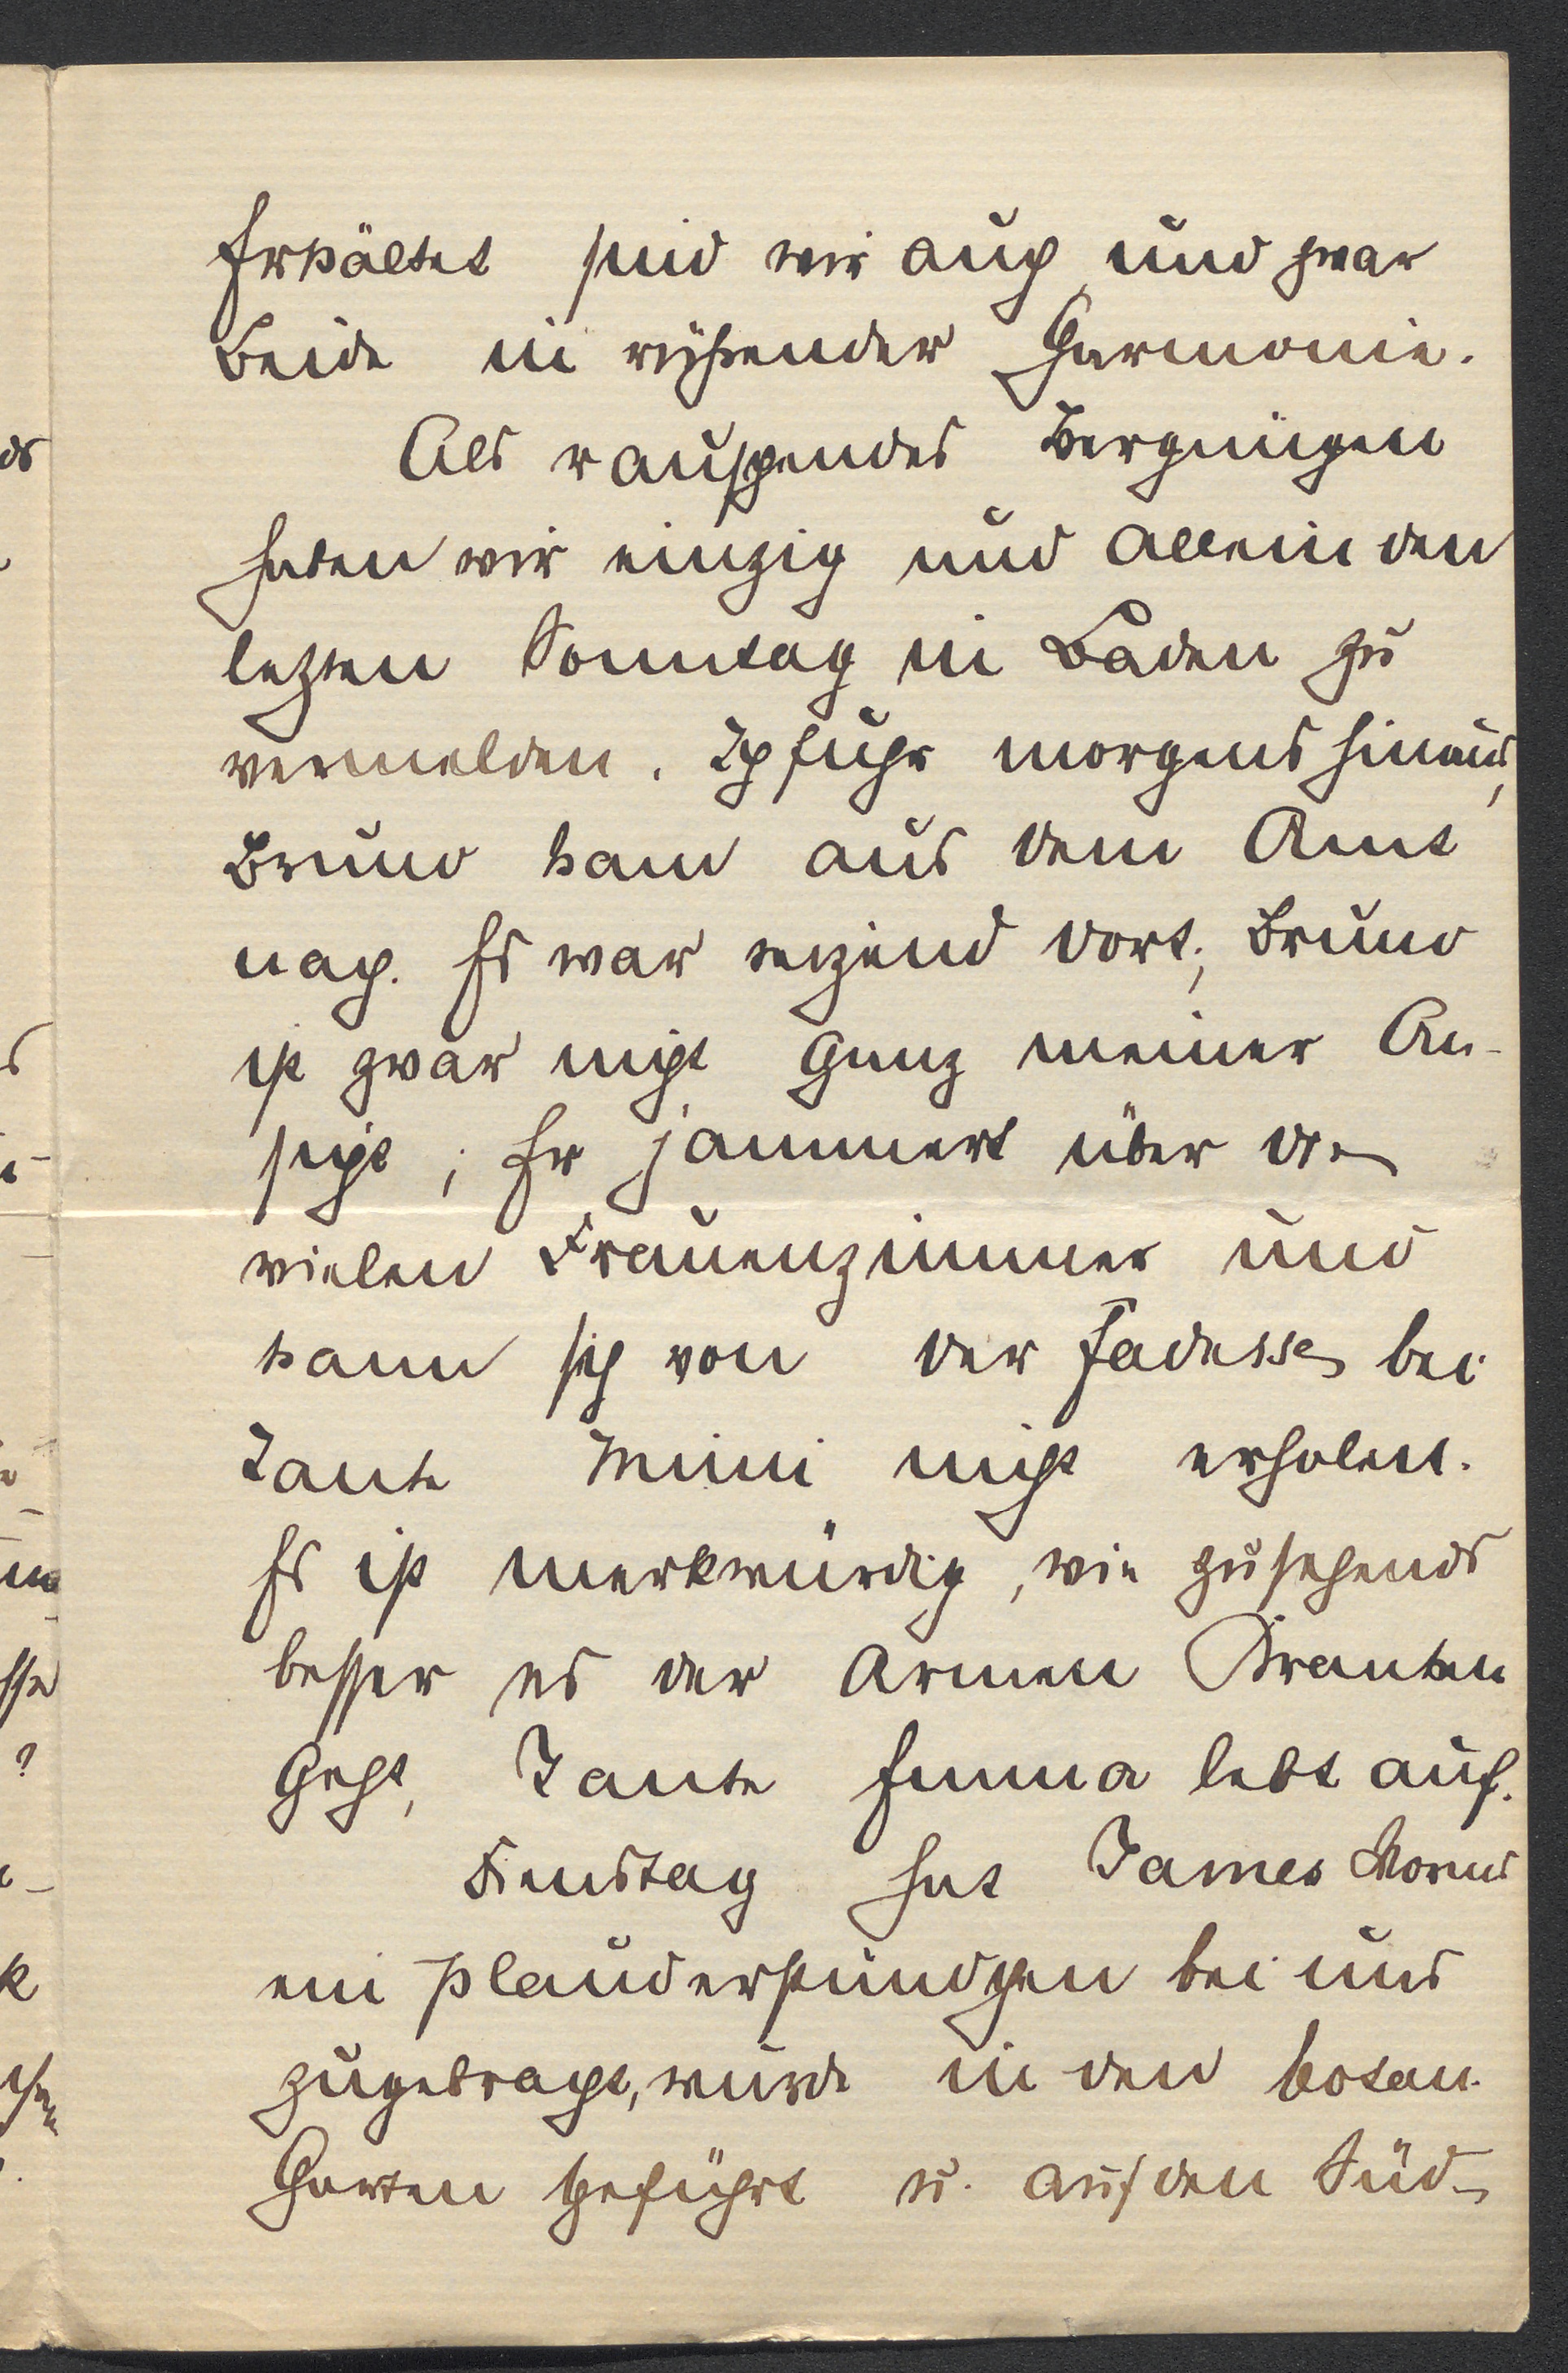 Erkältet sind wir auch, und zwar
Beide in rührender Harmonie.
Als rauschendes Vergnügen
haben wir einzig und allein den
letzten Sonntag in Baden zu
vermelden. Ich fuhr morgens hinaus,
Bruno kam aus dem Amt
nach. Es war reizend dort; Bruno
ist zwar nicht ganz meiner An-
sicht; Er jammert über die
vielen Frauenzimmer und
kann sich von der Fadesse bei
Tante Mini nicht erholen.
Es ist merkwürdig, wie zusehends
besser es der armen Kranken
geht, Tante Emma lebt auf.
Dienstag hat James
ein Plauderstündchen bei uns
zugebracht, wurde in den botan.
Garten geführt u. auf den Süd-